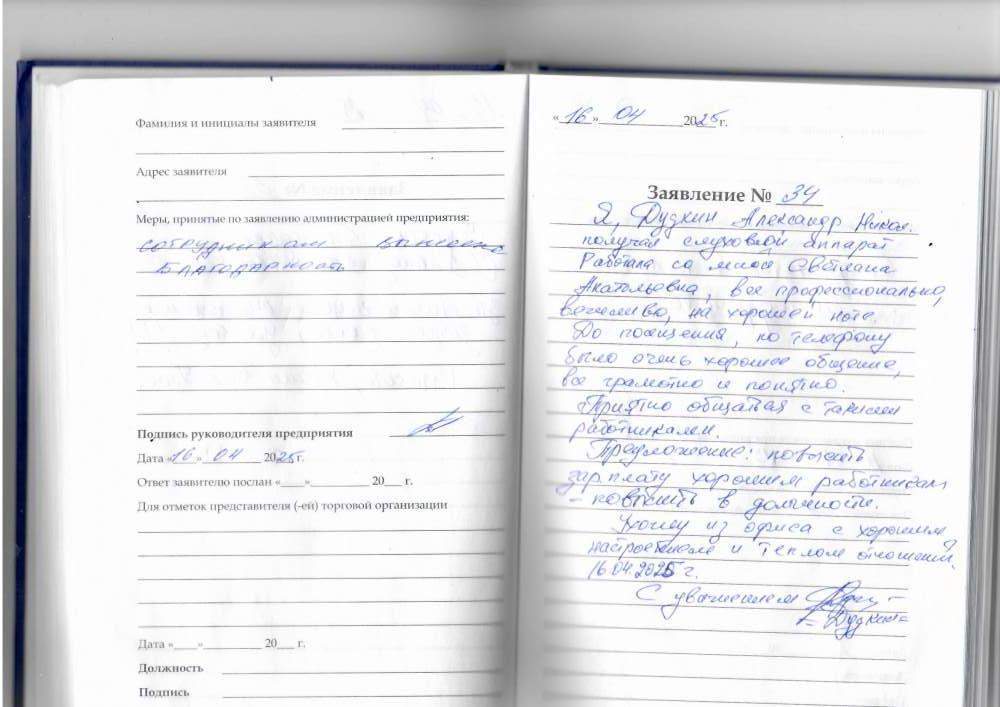 Фамилия и инициалы заявителя
Адрес заявителя
Меры, принятые по заявлению администрацией предприятия:
сотрудникам вынесена
благодарность
Подпись руководителя предприятия
Дата «16» 04 2025 г.
Ответ заявителю послан «___»__________ 20___ г.
Для отметок представителя (-ей) торговой организации
Дата «___»__________ 20___ г.
Должность
Подпись
«16» 04 2025 г.
Заявление № 34
Я, Дудкин Александр Никол.
получал слуховой аппарат
Работала со мной Светлана
Анатольевна, все профессионально,
вежливо, на хорошей ноте.
До посещения, по телефону
было очень хорошее общение,
все грамотно и понятно.
Приятно общаться с такими
работниками.
Предложение: повысить
зарплату хорошим работникам
- повысить в должности.
Ухожу из офиса с хорошим
настроением и теплом отношений.
16.04.2025 г.
С уважением
- Дудкин -